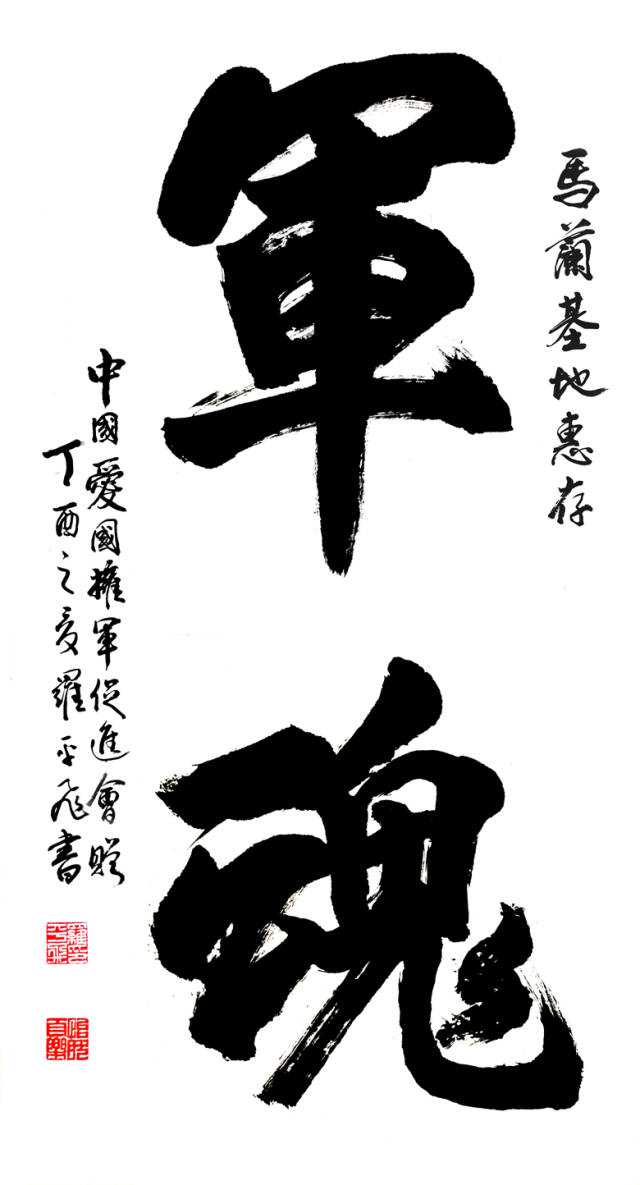 馬蘭基地惠存
軍魂
中國愛國擁軍促進會贈
丁酉之夏羅平飛書